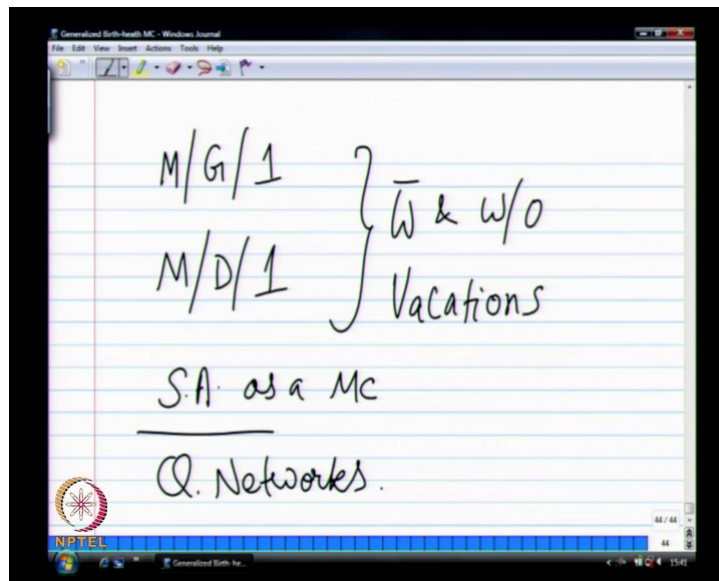 Generalized Birth-heath MC - Windows Journal
File Edit View Insert Actions Tools Help
M/G/1
M/D/1
W̄ & W/O
Vacations
S.A. as a MC
Q. Networks.
NPTEL
44 / 44
44
Generalized Birth-he...
15:41